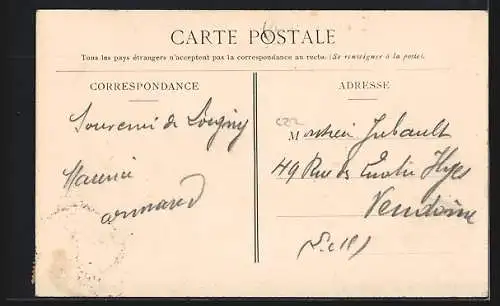 CARTE POSTALE
Tous les pays étrangers n'acceptent pas la correspondance au recto. (Se renseigner à la poste).
CORRESPONDANCE
ADRESSE
Souvenir de Loigny
Maurice
Armand
Monsieur Jubault
49 Rue des Quatre Huyes
Vendôme
(L. et Ch)